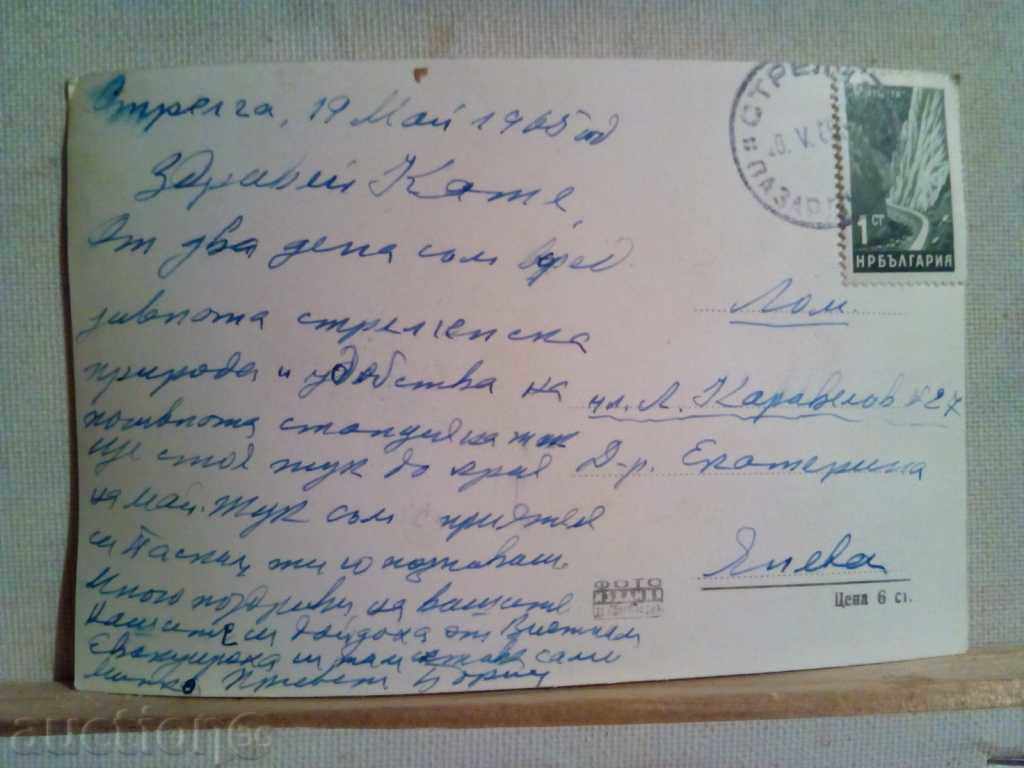 Стрелча, 19 Май 1965 год
Здравей Кате,
От два дена съм сред
дивната стрелченска
природа и удобства на
почивната станция на
Ще стоя тук до края
на май. Тук съм с приятеля
си ти го познаваш.
Много поздрави на вашите
Нашите си дойдоха от Виетнам
Евакуираха ги там остана само
Митко Привет Борис
СТРЕЛЧА
ПАЗАР
1 СТ
НРБЪЛГАРИЯ
Лом.
ул. Л. Каравелов №27
Д-р. Екатерина
Янева
ФОТО
Цена 6 ст.
auction